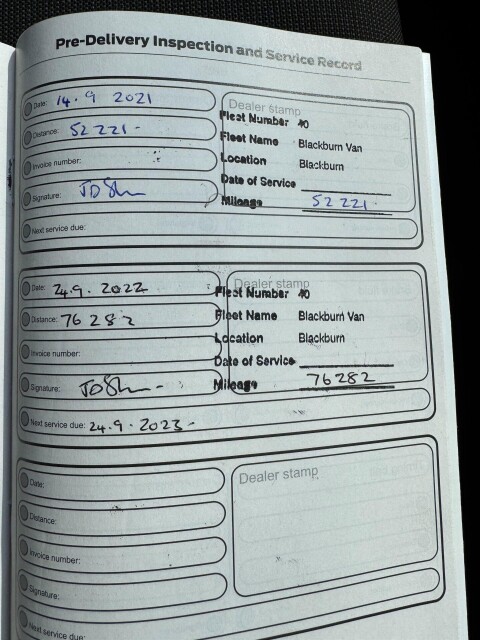 Pre-Delivery Inspection and Service Record
Date: 14.9 2021
Distance: 52 221-
Invoice number:
Signature:
Next service due:
Dealer stamp
Fleet Number 40
Fleet Name Blackburn Van
Location Blackburn
Date of Service
Mileage 52 221.
Date: 24.9. 2022
Distance: 76 282
Invoice number:
Signature:
Next service due: 24.9.2023-
Dealer stamp
Fleet Number 40
Fleet Name Blackburn Van
Location Blackburn
Date of Service
Mileage 76282
Date:
Distance:
Invoice number:
Signature:
Next service due:
Dealer stamp